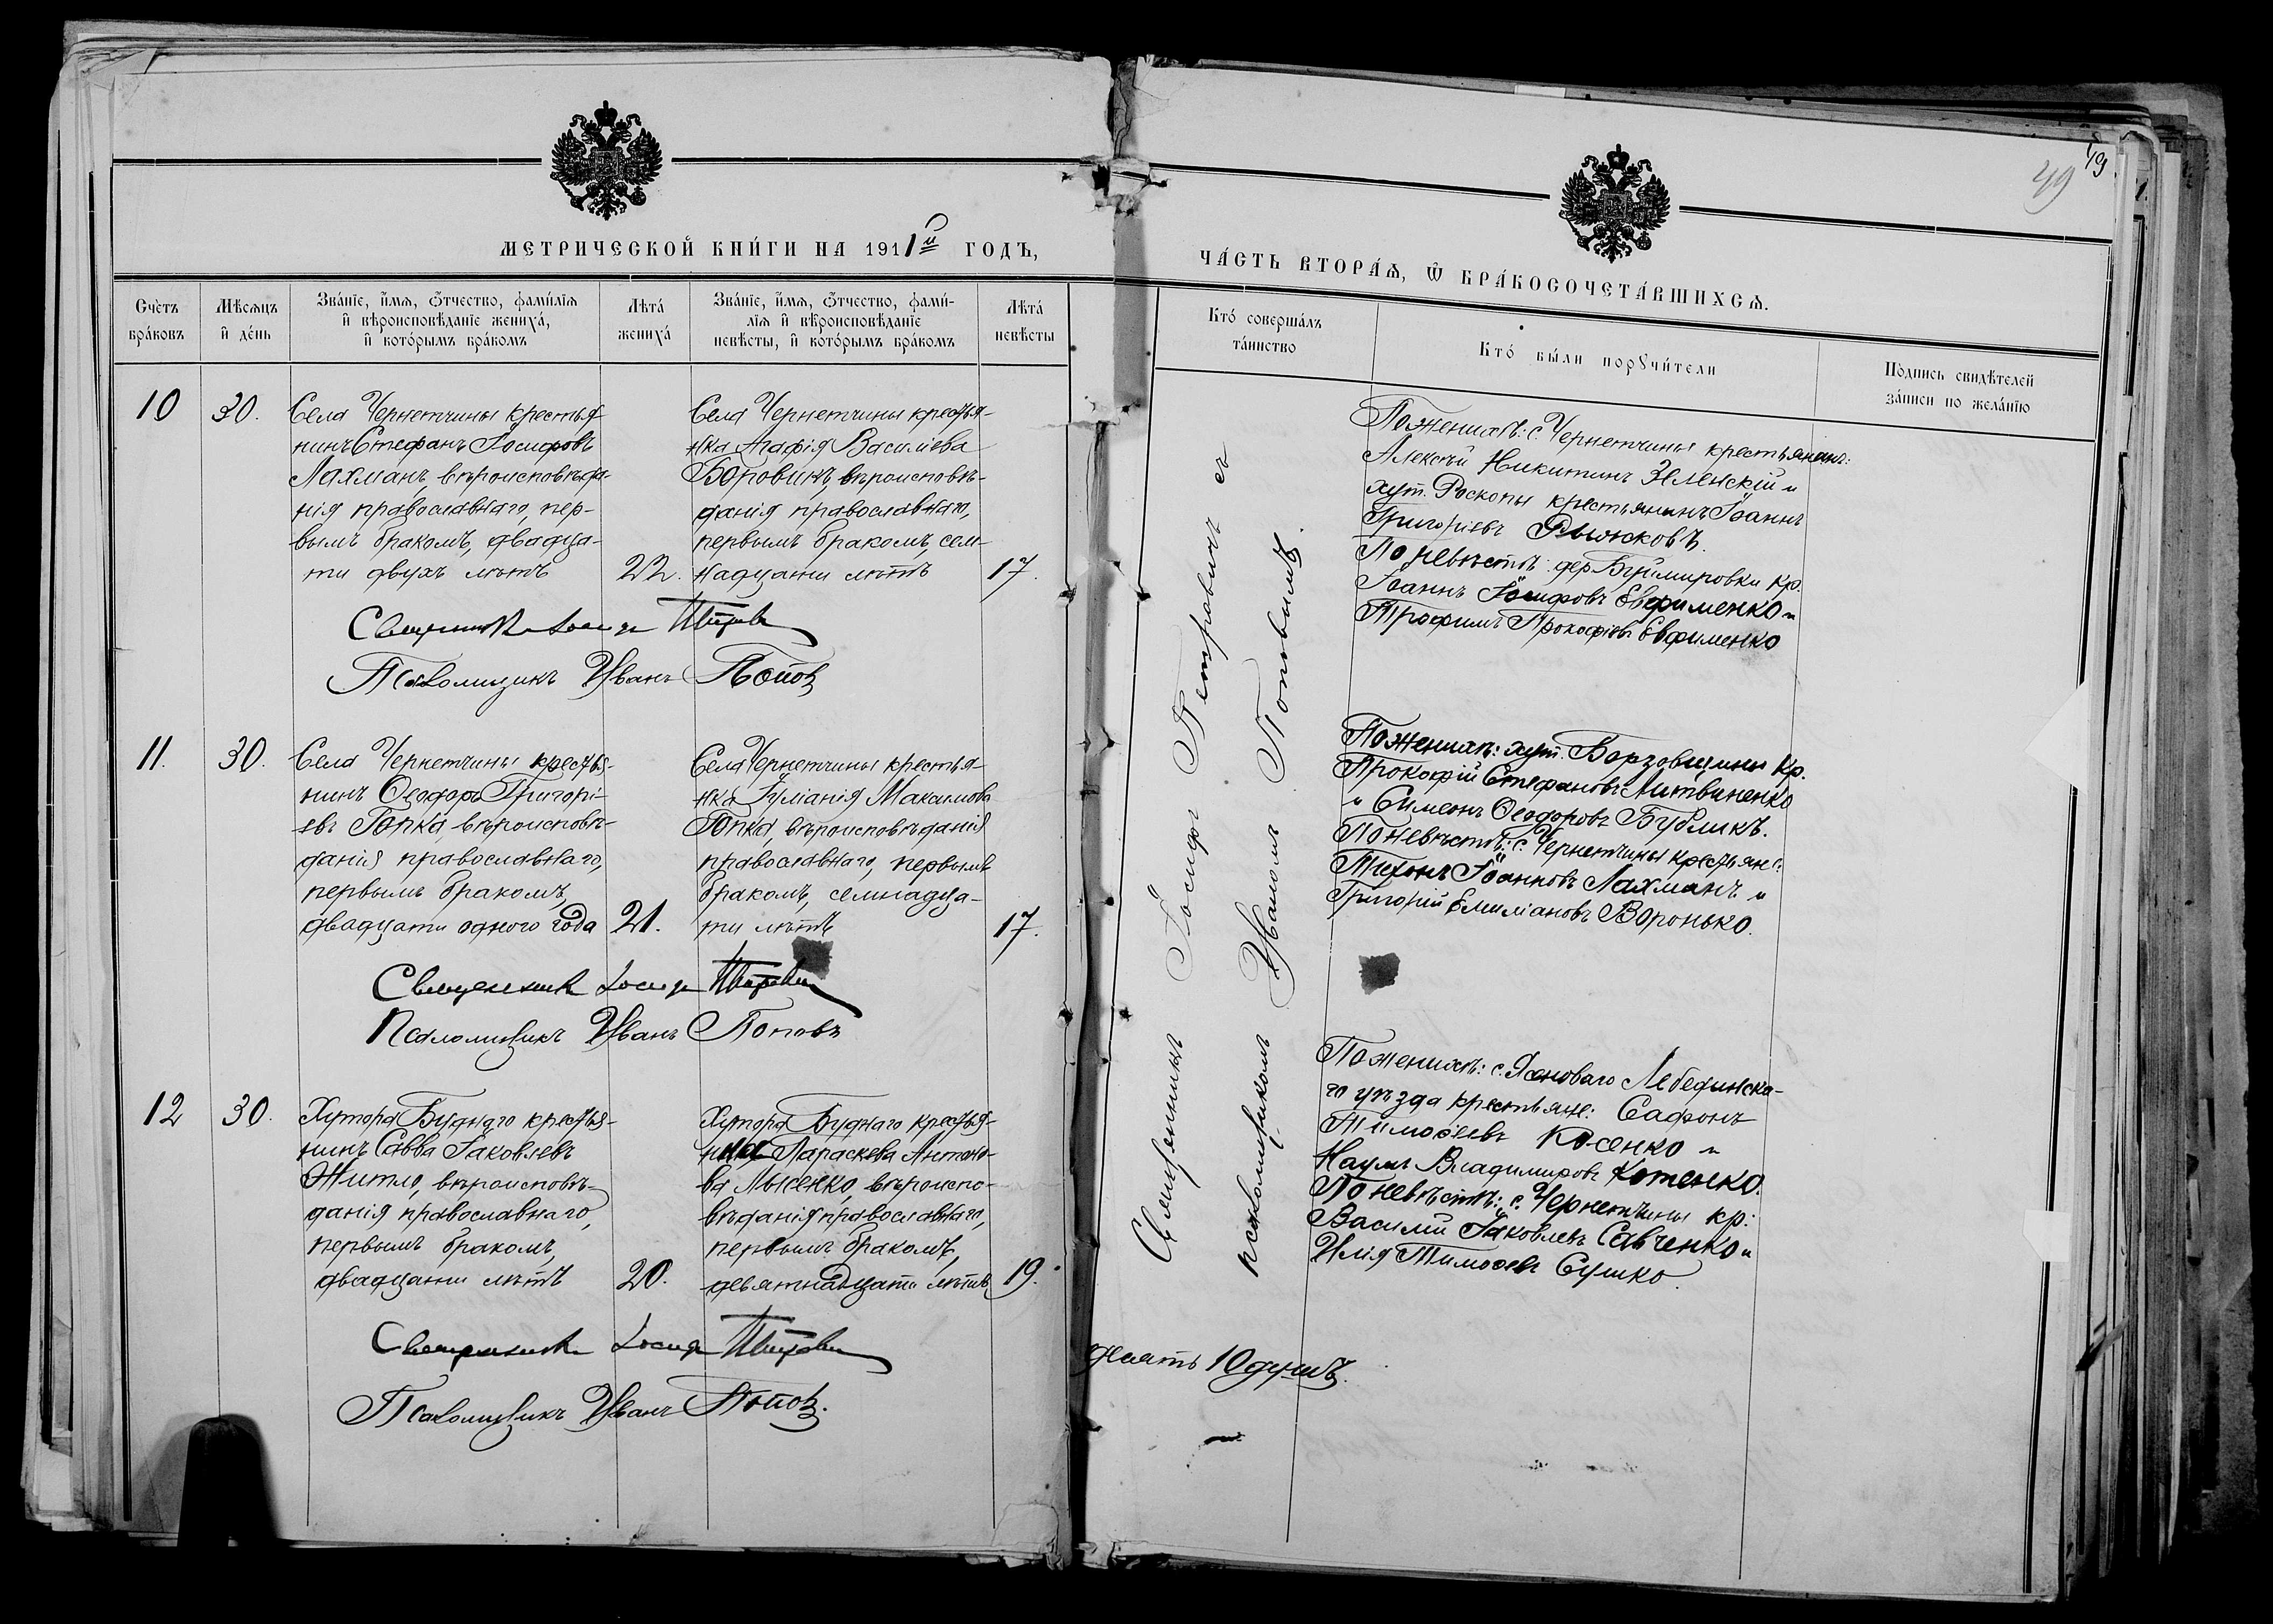 49
49
МЕТРИЧЕСКОЙ КНИ́ГИ НА 1911й ГОДЪ,
ЧА́СТЬ ВТОРА́Ѧ, Ѿ БРА́КОСОЧЕТА́ВШИХСѦ.
Сче́тъ бра́ковъ
Мѣ́сяцъ и҆ де́нь
Зва́нїе, и҆́мѧ, ѻ҆́тчество, фами́лїѧ
и҆ вѣроисповѣ́данїе жениха̀,
и҆ кото́рымъ бра́комъ
Лѣ́та жениха̀
Зва́нїе, и҆́мѧ, ѻ҆́тчество, фами́-
лїѧ и҆ вѣроисповѣ́данїе
невѣ́сты, и҆ кото́рымъ бра́комъ
Лѣта́ невѣ́сты
Кто́ соверша́лъ
та́инство
Кто́ бы́ли порꙋчи́тели
По́дпись свидѣ́телей
за́писи по жела́нїю
10
30.
Села Чернетчины крестья-
нинъ Стефанъ Іосифовъ
Лахманъ, вѣроисповѣда-
нія православнаго, пер-
вымъ бракомъ, двадца-
ти двухъ лѣтъ
22.
Села Чернетчины крестья-
нка Агафія Василіева
Боровикъ, вѣроисповѣ-
данія православнаго,
первымъ бракомъ, сем-
надцати лѣтъ
17.
Священникъ Іосифъ Петровичъ
Псаломщикъ Иванъ Поповъ
По женихѣ: с. Чернетчины крестьянинъ:
Алексѣй Никитинъ Зеленскій и
хут. Роскопы крестьянинъ Іоаннъ
Григоріевъ Рыжковъ.
По невѣстѣ: дер Буймировки кр.
Іоаннъ Іосифовъ Евфименко и
Трофимъ Прокофіевъ Евфименко
11.
30.
Села Чернетчины крестья-
нинъ Ѳеодоръ Григорі-
евъ Гопка, вѣроисповѣ-
данія православнаго,
первымъ бракомъ,
двадцати одного года
21.
Села Чернетчины крестья-
нка Іуліанія Максимова
Гопка, вѣроисповѣданія
православнаго, первымъ
бракомъ, семнадца-
ти лѣтъ
17.
Священникъ Іосифъ Петровичъ
Псаломщикъ Иванъ Поповъ
По женихѣ: хут. Борзовщины кр.
Прокофій Стефановъ Литвиненко
и Симеонъ Ѳеодоровъ Бубликъ.
По невѣстѣ: с. Чернетчины крестьяне:
Тихонъ Іоанновъ Лахманъ и
Григорій Емиліановъ Воронько.
12
30.
Хутора Буднаго крестья-
нинъ Савва Іаковлевъ
Житло, вѣроисповѣ-
данія православнаго,
первымъ бракомъ,
двадцати лѣтъ
20.
Хутора Буднаго крестья-
нка Параскева Антоно-
ва Лысенко, вѣроиспо-
вѣданія православнаго,
первымъ бракомъ,
девятнадцати лѣтъ
19.
Священникъ Іосифъ Петровичъ
Псаломщикъ Иванъ Поповъ.
По женихѣ: с. Ясеноваго Лебединска-
го уѣзда крестьяне: Сафонъ
Тимоѳеевъ Косенко и
Наумъ Владимировъ Котенко.
По невѣстѣ: с. Чернетчины кр:
Василій Іаковлевъ Савченко и
Илія Тимоѳеевъ Сушко.
Священникъ Іосифъ Петровичъ съ
псаломщикомъ Иваномъ Поповымъ.
десять 10 душъ.